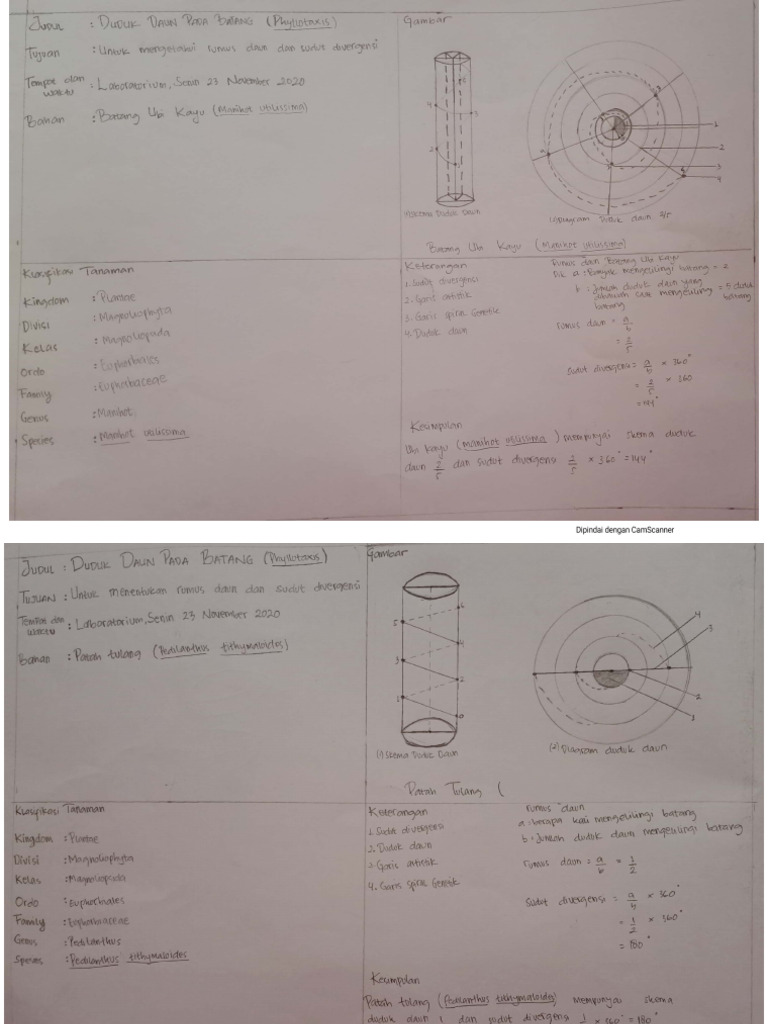 JUDUL : DUDUK DAUN PADA BATANG (Phyllotaxis)
Tujuan : Untuk mengetahui rumus daun dan sudut divergensi
Tempat dan waktu : Laboratorium, Senin 23 November 2020
Bahan : Batang Ubi Kayu (Manihot utilissima)
Gambar
6
4
3
2
1
(1) Skema Duduk Daun
1
2
3
4
(2) Diagram Duduk daun 2/5
Batang Ubi Kayu (Manihot utilissima)
Klasifikasi Tanaman
Kingdom : Plantae
Divisi : Magnoliophyta
Kelas : Magnoliopsda
Ordo : Euphorbales
Family : Euphorbaceae
Genus : Manihot
Species : Manihot utilissima
Keterangan
1. Sudut divergensi
2. Garis ortistik
3. Garis spiral Genetik
4. Duduk daun
Rumus daun Batang Ubi Kayu
Dik a : Banyak mengelilingi batang = 2
b : Jumlah duduk daun yang
mengelilingi = 5 duduk
batang
rumus daun = a/b
= 2/5
sudut divergensi = a/b × 360°
= 2/5 × 360
= 144°
Kesimpulan
Ubi Kayu (Manihot utilissima) mempunyai skema duduk
daun 2/5 dan sudut divergensi 2/5 × 360° = 144°
Dipindai dengan CamScanner
JUDUL : DUDUK DAUN PADA BATANG (Phyllotaxis)
TUJUAN : Untuk menentukan rumus daun dan sudut divergensi
Tempat dan waktu : Laboratorium, Senin 23 November 2020
Bahan : Patah tulang (Pedilanthus tithymaloides)
Gambar
6
5
4
3
2
1
0
(1) Skema Duduk Daun
4
3
2
1
(2) Diagram duduk daun
Patah Tulang (
Klasifikasi Tanaman
Kingdom : Plantae
Divisi : Magnoliophyta
Kelas : Magnoliopsida
Ordo : Euphorbiales
Family : Euphorbiaceae
Genus : Pedilanthus
Species : Pedilanthus tithymaloides
Keterangan
1. Sudut divergensi
2. Duduk daun
3. Garis ortistik
4. Garis Spiral Genetik
rumus daun
a : berapa kali mengelilingi batang
b : Jumlah duduk daun mengelilingi batang
rumus daun = a/b = 1/2
Sudut divergensi = a/b × 360°
= 1/2 × 360°
= 180°
Kesimpulan
Patah tulang (Pedilanthus tithymaloides) mempunyai skema
duduk daun 1 dan sudut divergensi 1/ × 360° = 180°